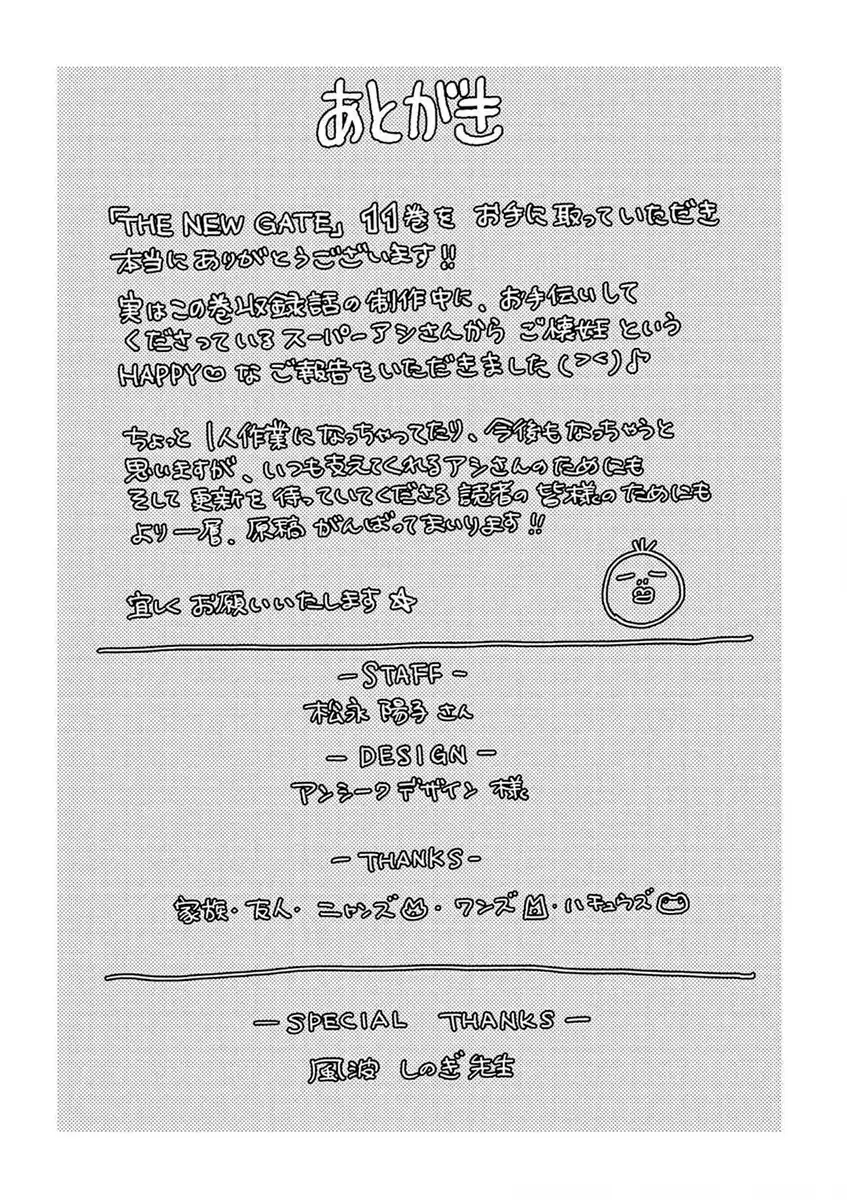 あとがき
「THE NEW GATE」11巻を お手に取っていただき
本当にありがとうございます!!
実はこの巻収録話の制作中に、お手伝いして
くださっているスーパーアシさんから ご懐妊 という
HAPPY♡な ご報告をいただきました(><)♪
ちょっと 1人作業になっちゃってたり、今後もなっちゃうと
思いますが、いつも支えてくれるアシさんのためにも
そして 更新を 待っていてくださる 読者の 皆様のためにも
より一層、原稿 がんばってまいります!!
宜しく お願いいたします☆
-STAFF-
松永 陽子 さん
-DESIGN-
アンシークデザイン 様
-THANKS-
家族・友人・ニャンズ・ワンズ・ハチュウズ
-SPECIAL THANKS-
風波 しのぎ 先生